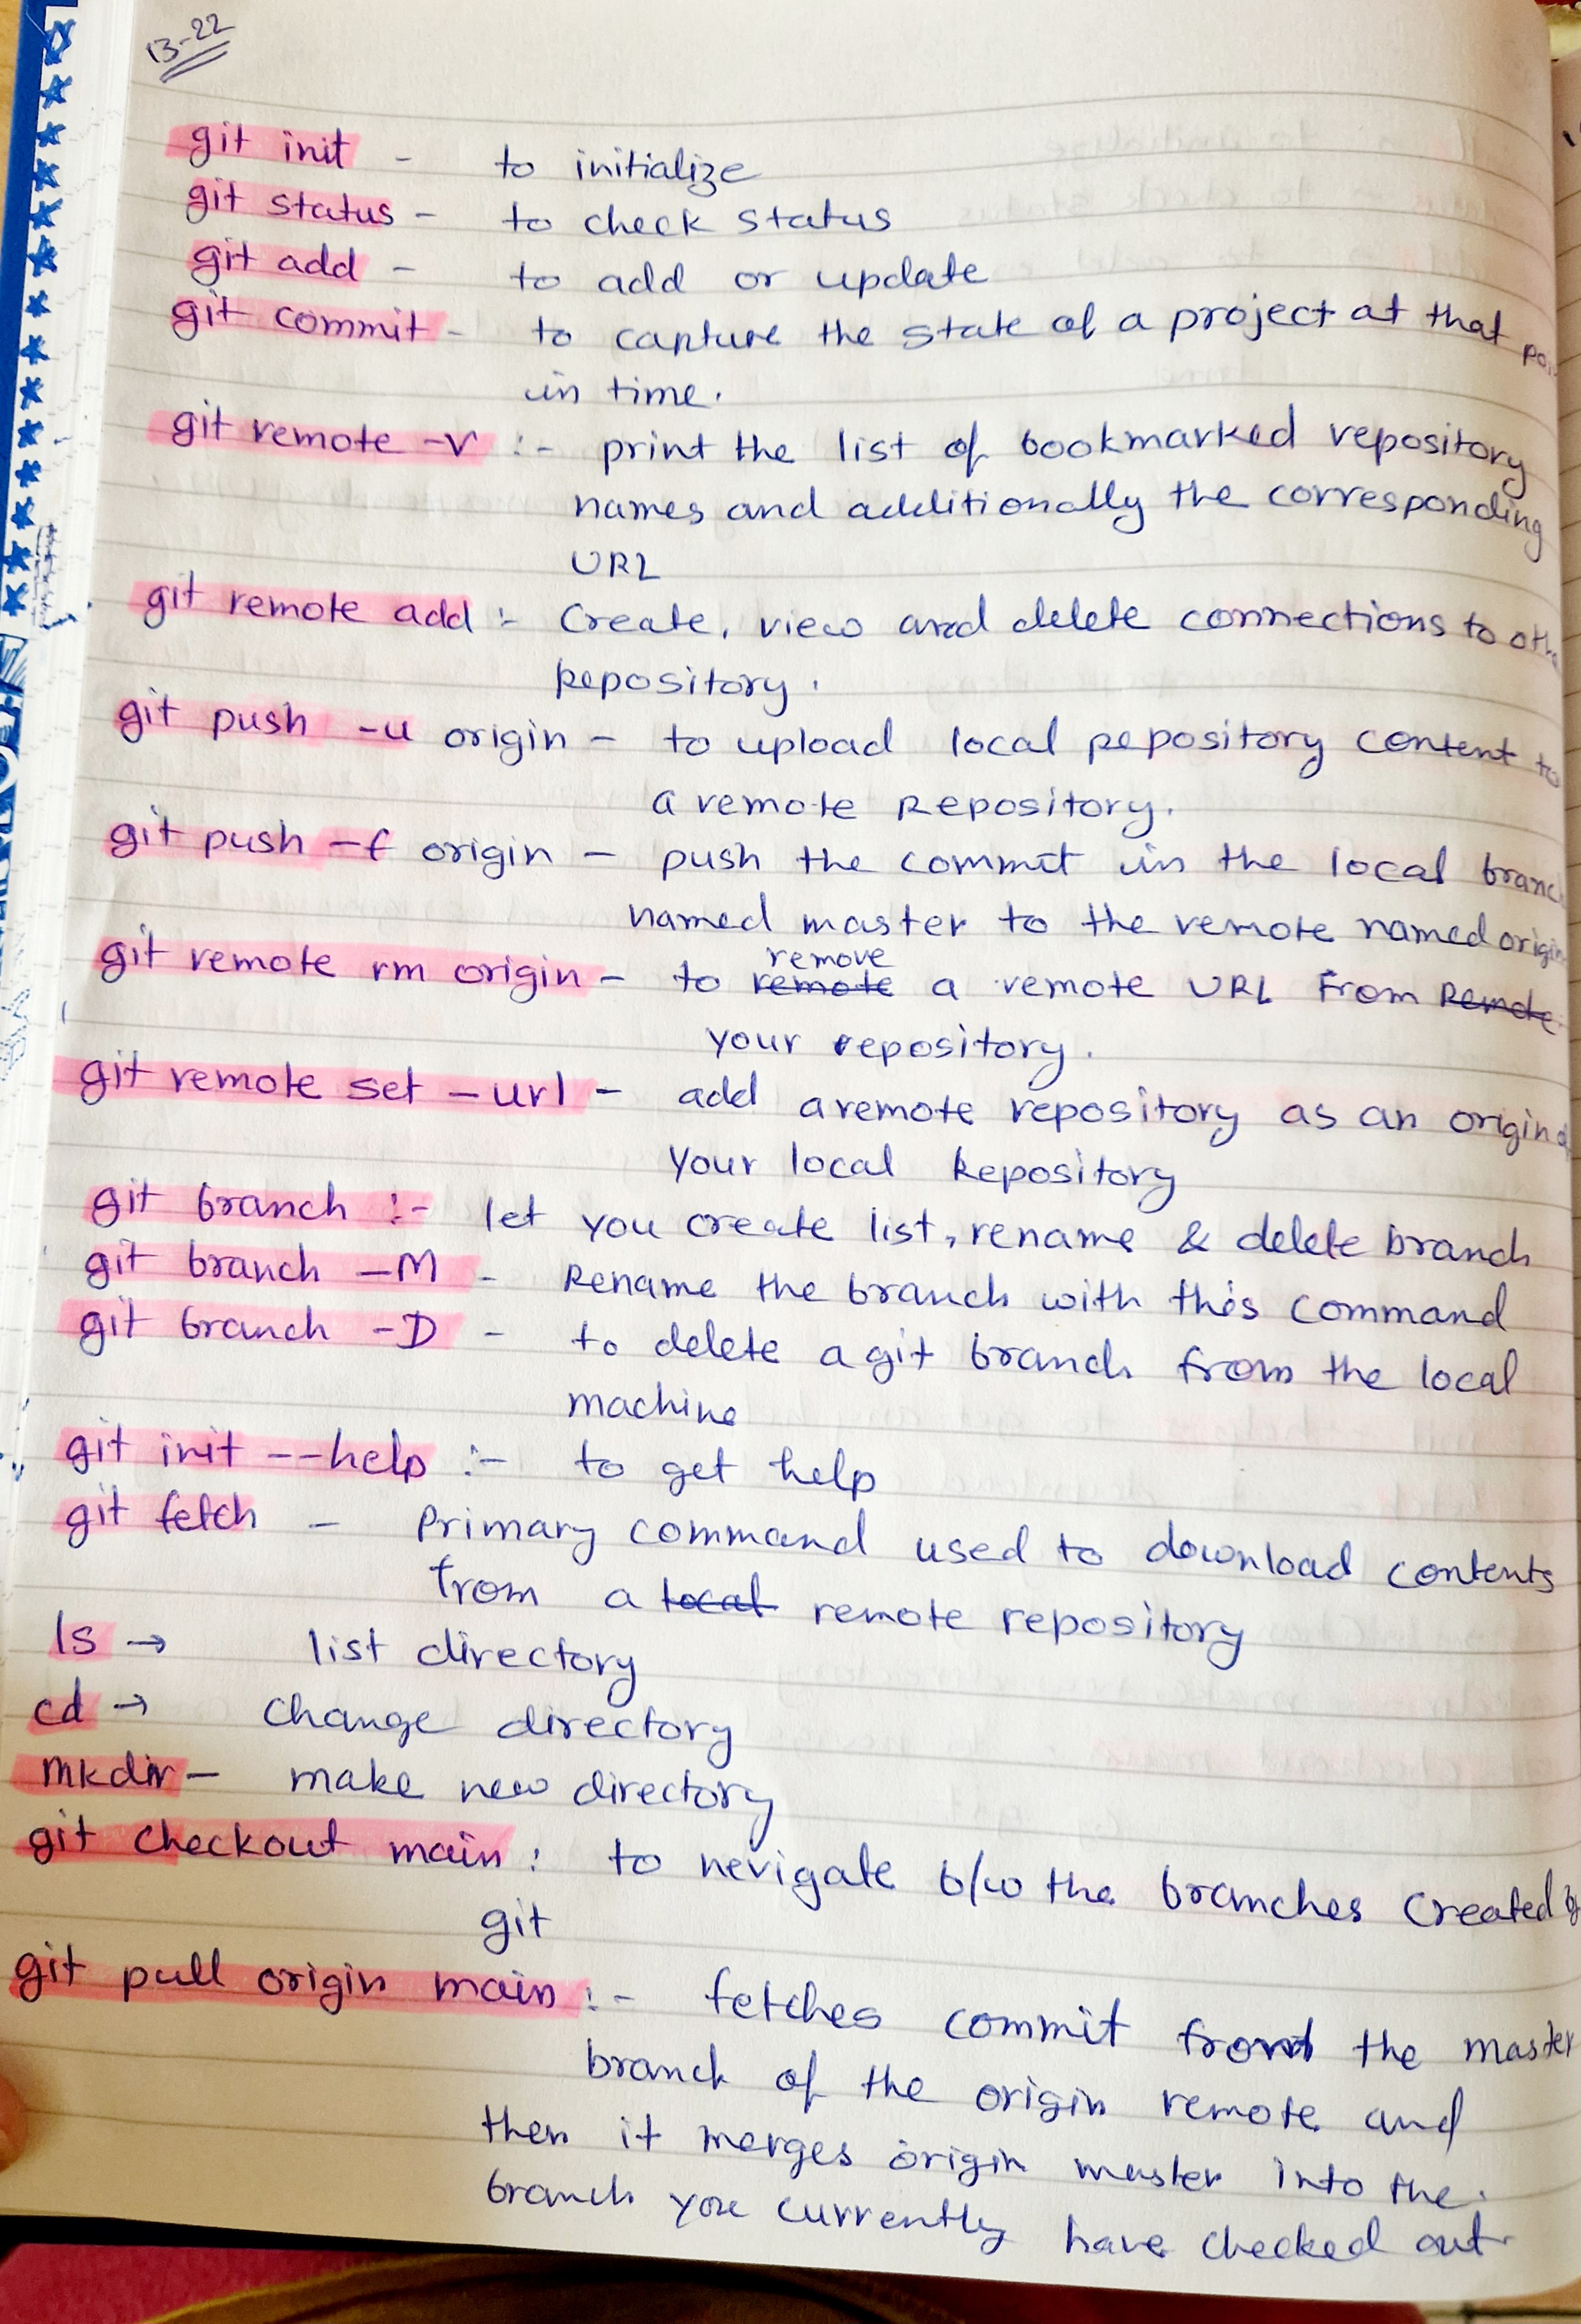 13-22
git init - to initialize
git status - to check status
git add - to add or update
git commit - to capture the state of a project at that
in time.
git remote -v :- print the list of bookmarked repository
names and additionally the corresponding
URL
git remote add :- Create, view and delete connections to
repository.
git push -u origin - to upload local repository content to
a remote Repository.
git push -f origin - push the commit in the local branch
named master to the remote named origin
remove
git remote rm origin - to remote a remote URL from Remote
your repository.
git remote set -url - add a remote repository as an origin
your local Repository
git branch :- let you create list, rename & delete branch
git branch -M - Rename the branch with this command
git branch -D - to delete a git branch from the local
machine
git init --help :- to get help
git fetch - Primary command used to download contents
from a local remote repository
ls → list directory
cd → change directory
mkdir - make new directory
git checkout main : to nevigate b/w the branches created by
git
git pull origin main :- fetches commit from the master
branch of the origin remote and
then it merges origin master into the
branch you currently have checked out